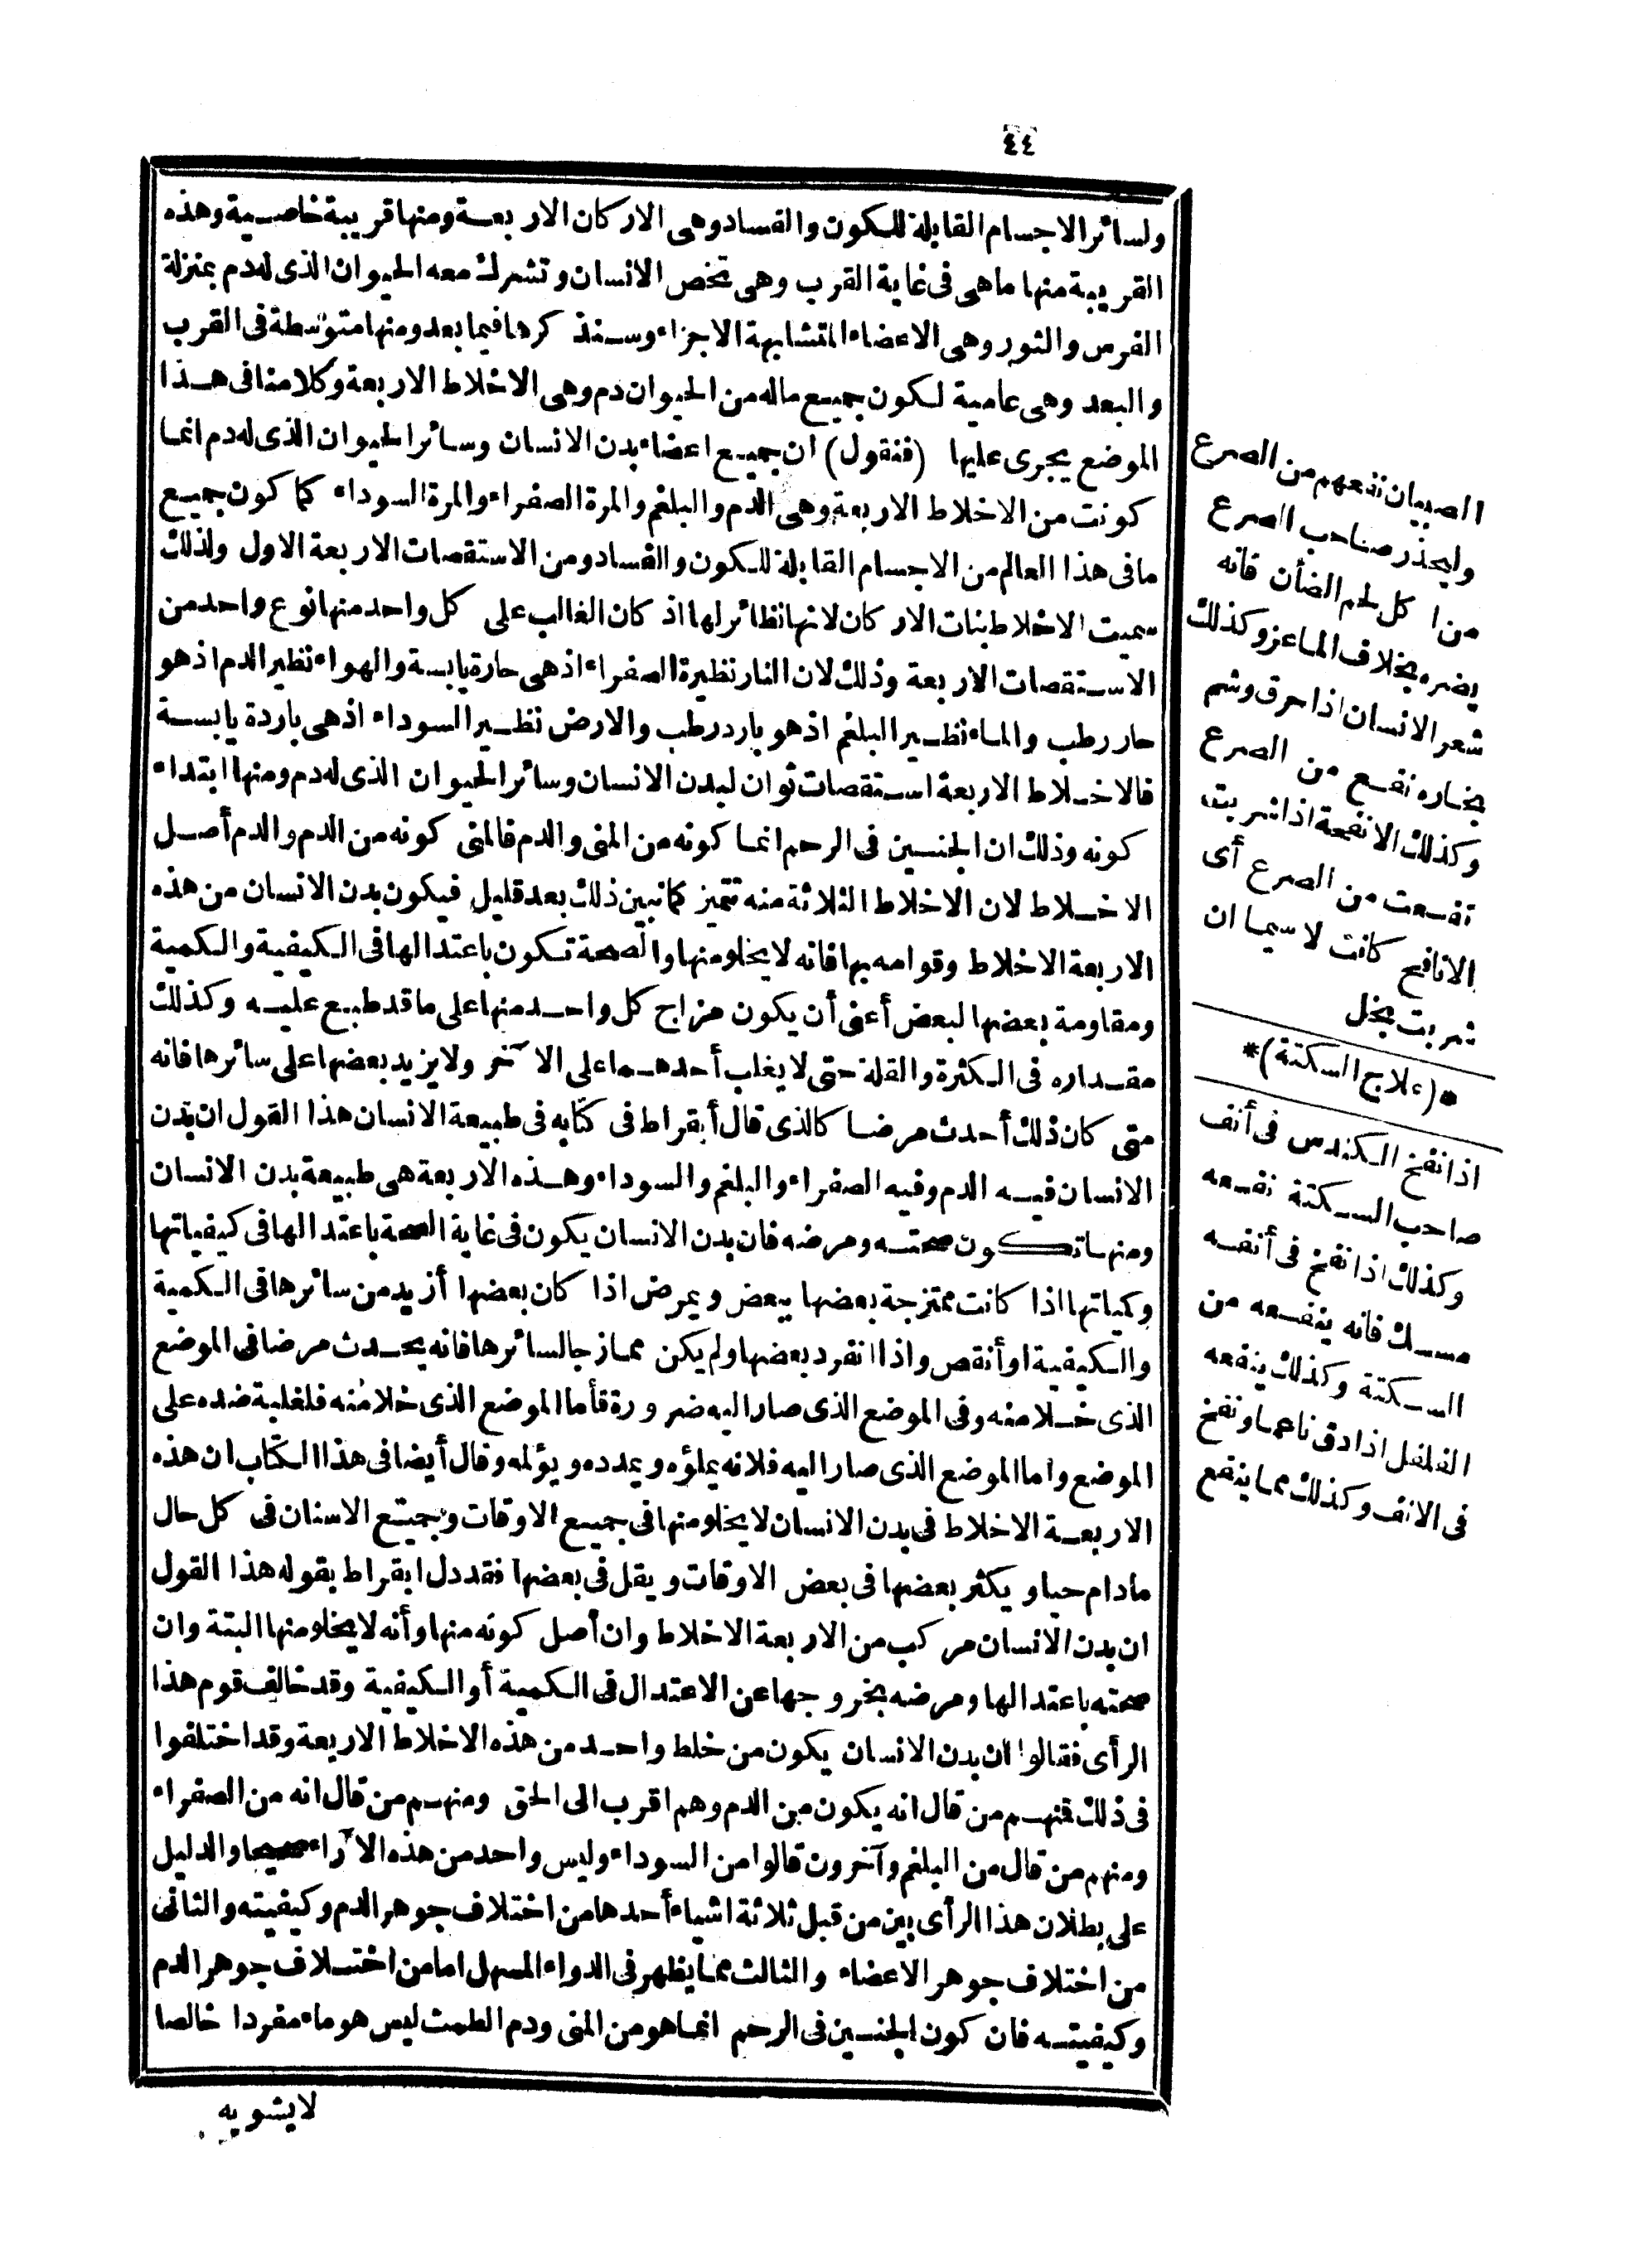 ٤٤
ولسائر الاجسام القابلة للكون والفساد وهى الاركان الاربعة ومنها قريبة خاصية وهذه
القريبة منها ماهى فى غاية القرب وهى تخص الانسان وتشرك معه الحيوان الذى له دم بمنزلة
الفرس والثور وهى الاعضاء المتشابهة الاجزاء وسنذكرها فيما بعد ومنها متوسطة فى القرب
والبعد وهى عامية لكون جميع ماله من الحيوان دم وهى الاخلاط الاربعة وكلامنا فى هذا
الموضع يجرى عليها (فنقول) ان جميع اعضاء بدن الانسان وسائر الحيوان الذى له دم انما
كونت من الاخلاط الاربعة وهى الدم والبلغم والمرة الصفراء والمرة السوداء كما كون جميع
ما فى هذا العالم من الاجسام القابلة للكون والفساد ومن الاستقصات الاربعة الاول ولذلك
سميت الاخلاط بنات الاركان لانها نظائر لها اذ كان الغالب على كل واحد منها نوع واحد من
الاستقصات الاربعة وذلك لان النار نظيرة الصفراء اذ هى حارة يابسة والهواء نظير الدم اذ هو
حار رطب والماء نظير البلغم اذ هو بارد رطب والارض نظير السوداء اذ هى باردة يابسة
فالاخلاط الاربعة استقصات ثوان لبدن الانسان وسائر الحيوان الذى له دم ومنها ابتداء
كونه وذلك ان الجنين فى الرحم انما كونه من المنى والدم فالمنى كونه من الدم والدم أصل
الاخلاط لان الاخلاط الثلاثة منه تتميز كما نبين ذلك بعد قليل فيكون بدن الانسان من هذه
الاربعة الاخلاط وقوامه بها فانه لا يخلو منها والصحة تكون باعتدالها فى الكيفية والكمية
ومقاومة بعضها لبعض أعنى أن يكون مزاج كل واحد منها على ما قد طبع عليه وكذلك
مقداره فى الكثرة والقلة حتى لا يغلب أحدهما على الآخر ولا يزيد بعضها على سائرها فانه
متى كان ذلك أحدث مرضا كالذى قال أبقراط فى كتابه فى طبيعة الانسان هذا القول ان بدن
الانسان فيه الدم وفيه الصفراء والبلغم والسوداء وهذه الاربعة هى طبيعة بدن الانسان
ومنها تكون صحته ومرضه فان بدن الانسان يكون فى غاية الصحة باعتدالها فى كيفياتها
وكمياتها اذا كانت ممتزجة بعضها ببعض ويمرض اذا كان بعضها أزيد من سائرها فى الكمية
والكيفية او أنقص واذا انفرد بعضها ولم يكن ممازجا لسائرها فانه يحدث مرضا فى الموضع
الذى خلا منه وفى الموضع الذى صار اليه ضرورة فأما الموضع الذى خلا منه فلغلبة ضده على
الموضع واما الموضع الذى صار اليه فلانه يملؤه ويمدده ويؤلمه وقال أيضا فى هذا الكتاب ان هذه
الاربعة الاخلاط فى بدن الانسان لا يخلو منها فى جميع الاوقات وجميع الاسنان فى كل حال
مادام حيا ويكثر بعضها فى بعض الاوقات ويقل فى بعضها فقد دل ابقراط بقوله هذا القول
ان بدن الانسان مركب من الاربعة الاخلاط وان أصل كونه منها وأنه لا يخلو منها البتة وان
صحته باعتدالها ومرضه بخروجها عن الاعتدال فى الكمية أو الكيفية وقد خالف قوم هذا
الرأى فقالوا ان بدن الانسان يكون من خلط واحد من هذه الاخلاط الاربعة وقد اختلفوا
فى ذلك فمنهم من قال انه يكون من الدم وهم اقرب الى الحق ومنهم من قال انه من الصفراء
ومنهم من قال من البلغم وآخرون قالوا من السوداء وليس واحد من هذه الآراء صحيحا والدليل
على بطلان هذا الرأى بين من قبل ثلاثة اشياء أحدها من اختلاف جوهر الدم وكيفيته والثانى
من اختلاف جوهر الاعضاء والثالث مما يظهر فى الدواء المسهل اما من اختلاف جوهر الدم
وكيفيته فان كون الجنين فى الرحم انما هو من المنى ودم الطمث ليس هو ماء مفردا خالصا
لا يشوبه
الصبيان نفعهم من الصرع
وليحذر صاحب الصرع
من اكل لحم الضأن فانه
يضره بخلاف الماعز وكذلك
شعر الانسان اذا حرق وشم
بخاره نفع من الصرع
وكذلك الانفحة اذا شربت
نفعت من الصرع أى
الانافح كانت لا سيما ان
شربت بخل
*(علاج السكتة)*
اذا نفخ الكندس فى أنف
صاحب السكتة نفعه
وكذلك اذا نفخ فى أنفه
مسك فانه ينفعه من
السكتة وكذلك ينفعه
الفلفل اذا دق ناعما ونفخ
فى الانف وكذلك مما ينفع